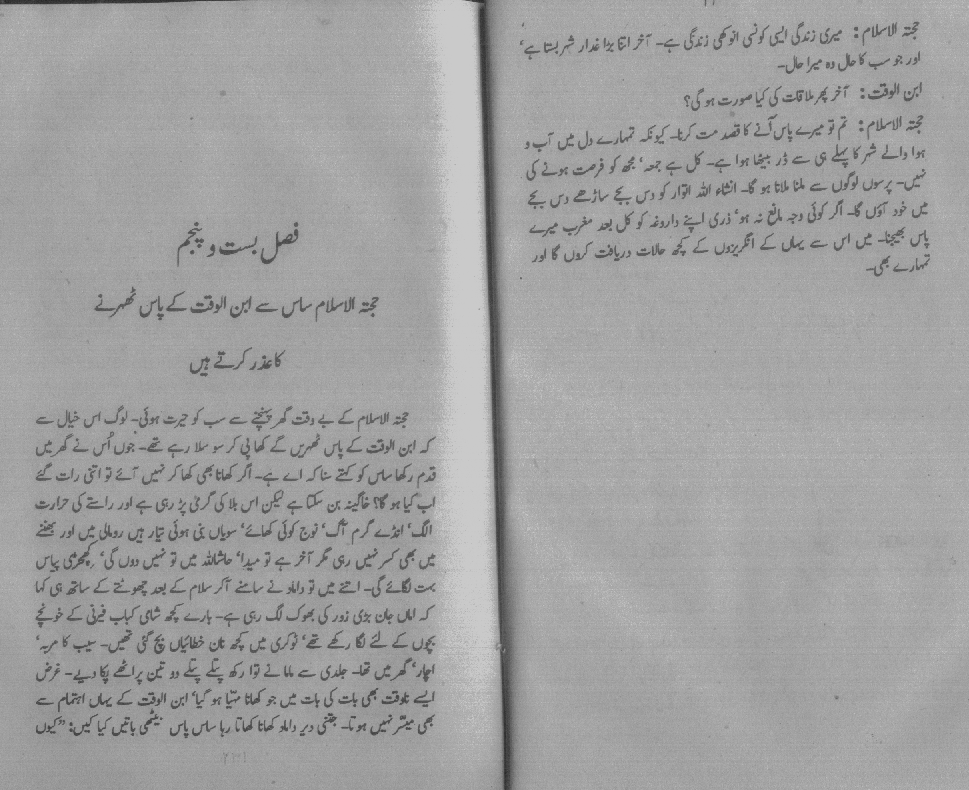 حجتہ الاسلام: میری زندگی ایسی کونسی انوکھی زندگی ہے۔ آخر اتنا بڑا غدار شہر بستا ہے‘
اور جو سب کا حال وہ میرا حال۔
ابن الوقت: آخر پھر ملاقات کی کیا صورت ہو گی؟
حجتہ الاسلام: تم تو میرے پاس آنے کا قصد مت کرنا۔ کیونکہ تمہارے دل میں آب و
ہوا والے شہر کا پہلے ہی سے ڈر بیٹھا ہوا ہے۔ کل ہے جمعہ‘ مجھ کو فرصت ہونے کی
نہیں۔ پرسوں لوگوں سے ملنا ملانا ہو گا۔ انشاء اللہ اتوار کو دس بجے ساڑھے دس بجے
میں خود آؤں گا۔ اگر کوئی وجہ مانع نہ ہو‘ ذری اپنے داروغہ کو کل بعد مغرب میرے
پاس بھیجنا۔ میں اس سے یہاں کے انگریزوں کے کچھ حالات دریافت کروں گا اور
تمہارے بھی۔
فصل بست و پنجم
حجتہ الاسلام ساس سے ابن الوقت کے پاس ٹھہرنے
کا عذر کرتے ہیں
حجتہ الاسلام کے بے وقت گھر پہنچنے سے سب کو حیرت ہوئی۔ لوگ اس خیال سے
کہ ابن الوقت کے پاس ٹھہریں گے کھا پی کر سو سلا رہے تھے۔ جوں اُس نے گھر میں
قدم رکھا ساس کو کہتے سنا کہ اے ہے۔ اگر کھانا بھی کھا کر نہیں آئے تو اتنی رات گئے
اب کیا ہو گا؟ خاگینہ بن سکتا ہے لیکن اس بلا کی گرمی پڑ رہی ہے اور راستے کی حرارت
الگ‘ انڈے گرم آگ‘ نوج کوئی کھائے‘ سویاں بنی ہوئی تیار ہیں رومالی میں اور بھننے
میں بھی کسر نہیں رہی مگر آخر ہے تو میدا‘ حاشاللہ میں تو نہیں دوں گی‘ کھچڑی پیاس
بہت لگائے گی۔ اتنے میں تو داماد نے سامنے آ کر سلام کے بعد چھوٹتے کے ساتھ ہی کہا
کہ اماں جان بڑی زور کی بھوک لگ رہی ہے۔ بارے کچھ شامی کباب فیرنی کے خونچے
بچوں کے لئے لگا رکھے تھے‘ ٹوکری میں کچھ نان خطائیاں بچ گئی تھیں۔ سیب کا مربہ‘
اچار‘ گھر میں تھا۔ جلدی سے ماما نے توا رکھ پتلے پتلے دو تین پراٹھے پکا دیے۔ غرض
ایسے ناوقت بھی بات کی بات میں جو کھانا مہیا ہو گیا‘ ابن الوقت کے یہاں اہتمام سے
بھی میسر نہیں ہوتا۔ جتنی دیر داماد کھانا کھاتا رہا ساس پاس بیٹھی باتیں کیا کیں: ”کیوں